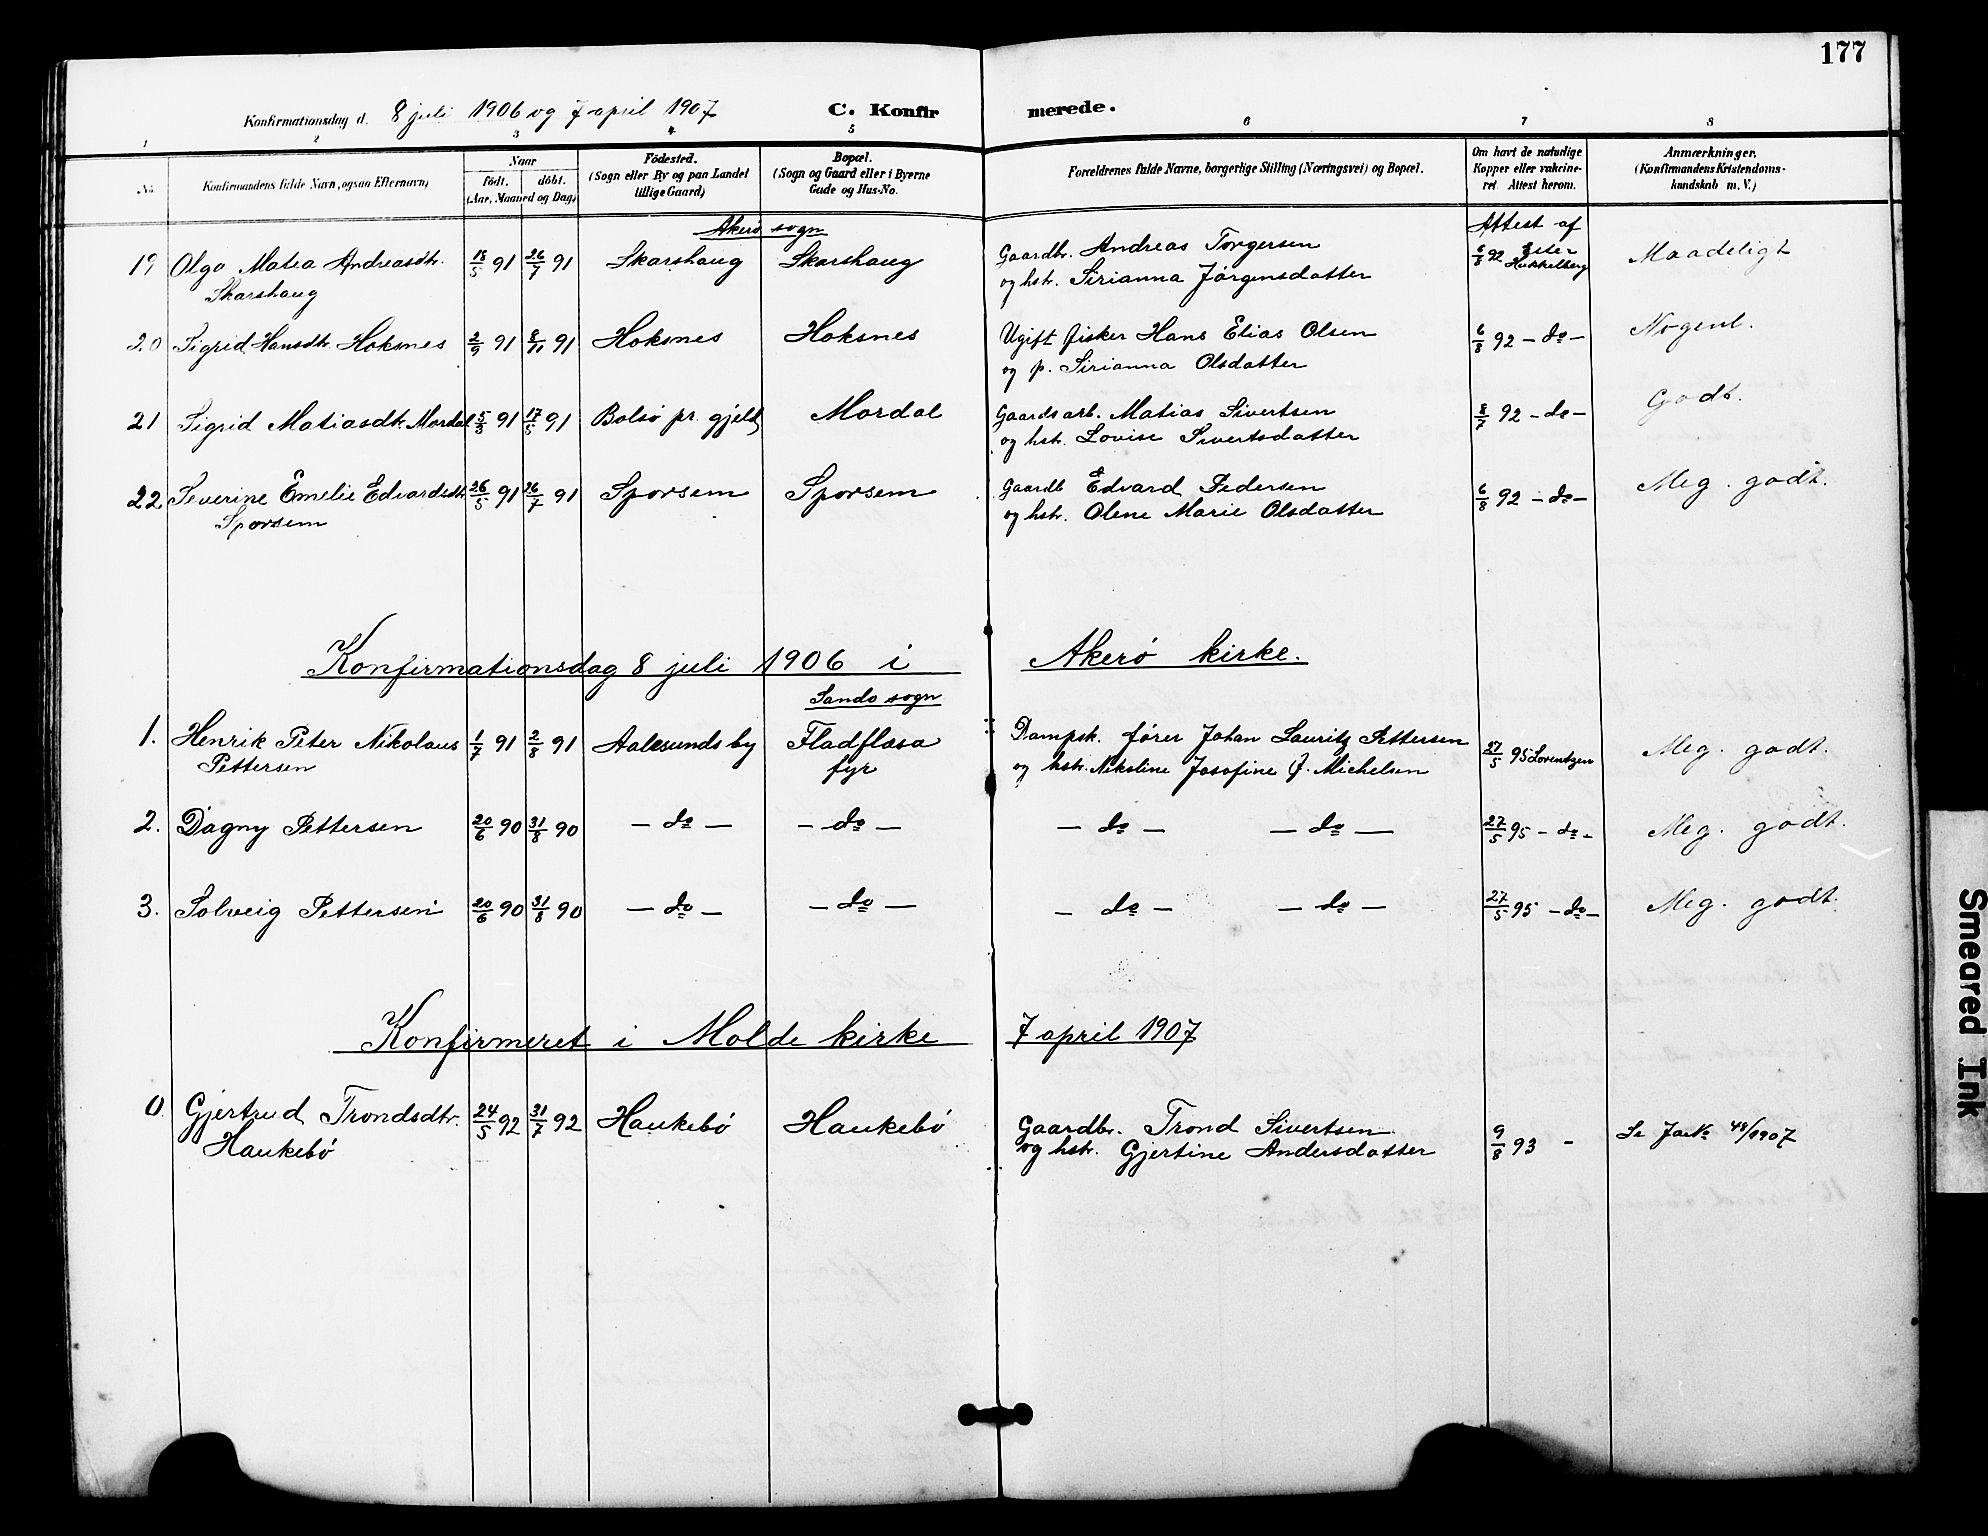 177
Konfirmationsdag d. 8 juli 1906 og 7 april 1907 C. Konfirmerede.
1 2 3 4 5 6 7 8
No. Konfirmandens fulde Navn, ogsaa Efternavn) Naar født. døbt. (Aar, Maaned og Dag) Fødested. (Sogn eller By og paa Landet tillige Gaard) Bopæl. (Sogn og Gaard eller i Byerne Gade og Hus-No. Forældrenes fulde Navne, borgerlige Stilling (Næringsvei) og Bopæl. Om havt de naturlige Kopper eller vakcineret. Attest herom. Anmærkninger. (Konfirmandens Kristendomskundskab m. V.)
Akerø sogn
19 Olga Matea Andreasdtr. 18/5 91 26/7 91 Skarshaug Skarshaug Gaardbr. Andreas Torgersen Attest af 6/8 92 Maadeligt
Skarshaug og hstr. Sirianna Jørgensdatter
20 Sigrid Hansdtr. Hoksnes 2/9 91 8/11 91 Hoksnes Hoksnes Ugift fisker Hans Elias Olsen 6/8 92 - do - Nogenl.
og p. Sirianna Olsdatter
21 Sigrid Matiasdtr. Mordal 5/3 91 17/5 91 Bolsø pr. gjeld Mordal Gaardsarb. Matias Sivertsen 8/7 92 - do - Godt.
og hstr. Lovise Sivertsdatter
22 Severine Emelie Edvardsdtr. 26/5 91 26/7 91 Sporsem Sporsem Gaardb Edvard Pedersen 6/8 92 - do - Meg. godt.
Sporsem og hstr. Olene Marie Olsdatter
Konfirmationsdag 8 juli 1906 i Akerø kirke.
Sandø sogn
1. Henrik Peter Nikolaus 1/7 91 2/8 91 Aalesunds by Fladflæsa Dampsk. fører Johan Lauritz Pettersen 27/5 95 Lorentzen Meg. godt.
Pettersen fyr og hstr. Nikoline Josefine f. Michelsen
2. Dagny Pettersen 20/6 90 31/8 90 - do - - do - - do - - do - 27/5 95 - do - Meg. godt.
3. Solveig Pettersen 20/6 90 31/8 90 - do - - do - - do - - do - 27/5 95 - do - Meg. godt.
Konfirmeret i Molde kirke 7 april 1907
0 Gjertrud Trondsdtr. 24/5 92 31/7 92 Haukebø Haukebø Gaardbr. Trond Sivertsen 9/8 93 - Se 48/1907
Haukebø og hstr. Gjertine Andersdatter
Smeared Ink